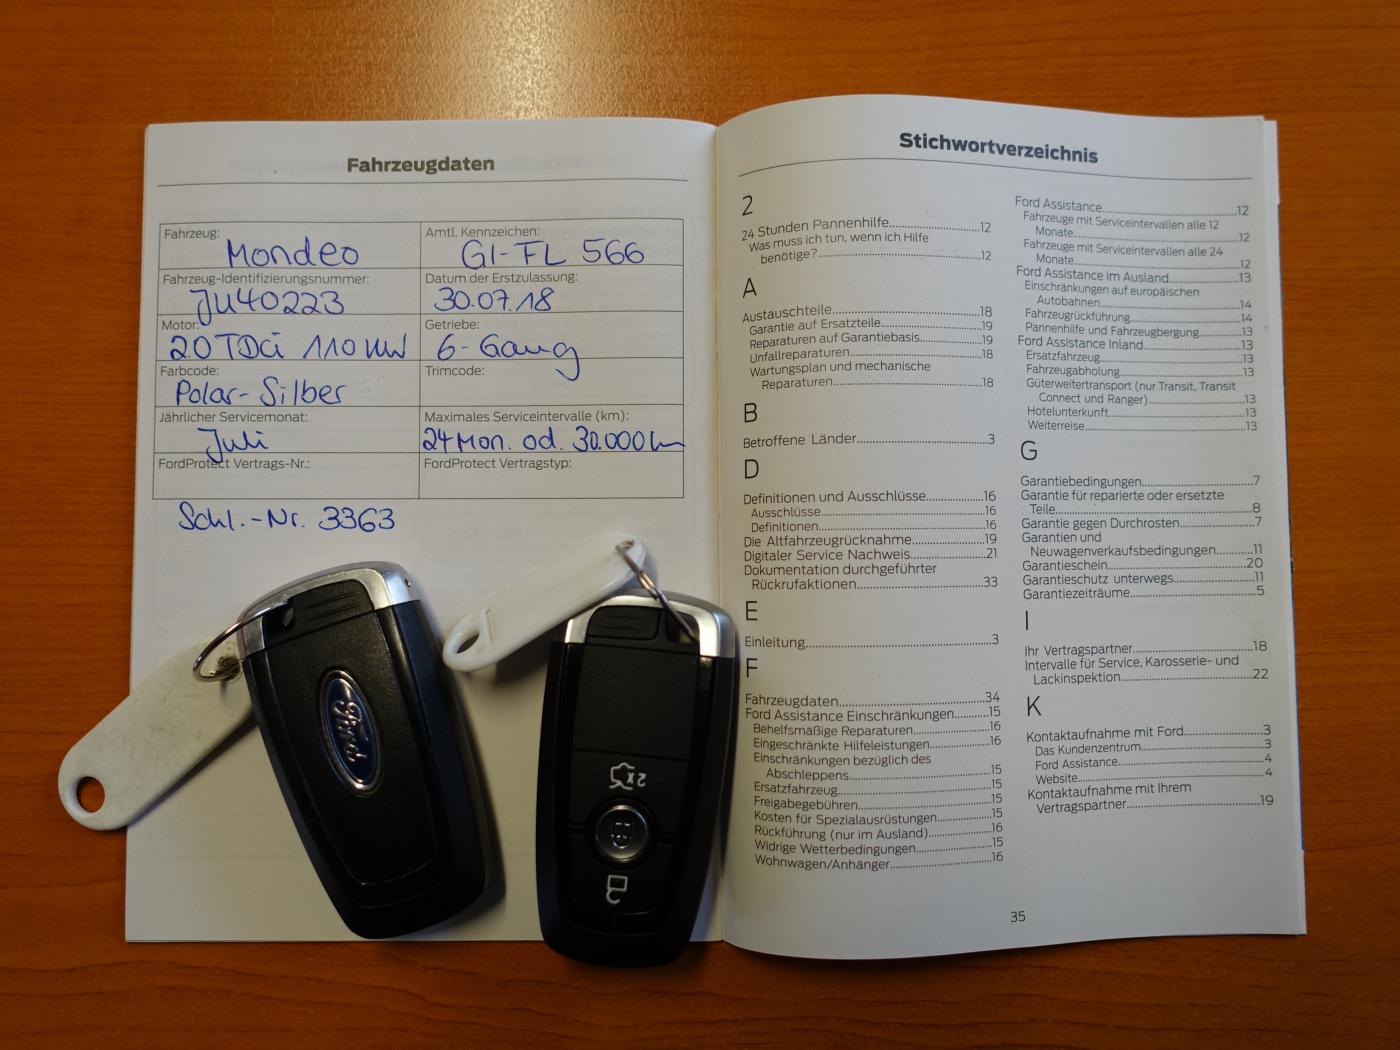 Fahrzeugdaten
Fahrzeug:
Mondeo
Amtl. Kennzeichen:
GI-FL 566
Fahrzeug-Identifizierungsnummer:
JU40223
Datum der Erstzulassung:
30.07.18
Motor:
2.0 TDCi 110 kW
Getriebe:
6-Gang
Farbcode:
Polar-Silber
Trimcode:
Jährlicher Servicemonat:
Juli
Maximales Serviceintervalle (km):
24 Mon. od. 30.000 km
FordProtect Vertrags-Nr.:
FordProtect Vertragstyp:
Schl.-Nr. 3363
Ford
2x
Stichwortverzeichnis
2
24 Stunden Pannenhilfe 12
Was muss ich tun, wenn ich Hilfe
benötige? 12
A
Austauschteile 18
Garantie auf Ersatzteile 19
Reparaturen auf Garantiebasis 19
Unfallreparaturen 18
Wartungsplan und mechanische
Reparaturen 18
B
Betroffene Länder 3
D
Definitionen und Ausschlüsse 16
Ausschlüsse 16
Definitionen 16
Die Altfahrzeugrücknahme 19
Digitaler Service Nachweis 21
Dokumentation durchgeführter
Rückrufaktionen 33
E
Einleitung 3
F
Fahrzeugdaten 34
Ford Assistance Einschränkungen 15
Behelfsmäßige Reparaturen 16
Eingeschränkte Hilfeleistungen 16
Einschränkungen bezüglich des
Abschleppens 15
Ersatzfahrzeug 15
Freigabegebühren 15
Kosten für Spezialausrüstungen 15
Rückführung (nur im Ausland) 16
Widrige Wetterbedingungen 15
Wohnwagen/Anhänger 16
Ford Assistance 12
Fahrzeuge mit Serviceintervallen alle 12
Monate 12
Fahrzeuge mit Serviceintervallen alle 24
Monate 12
Ford Assistance im Ausland 13
Einschränkungen auf europäischen
Autobahnen 14
Fahrzeugrückführung 14
Pannenhilfe und Fahrzeugbergung 13
Ford Assistance Inland 13
Ersatzfahrzeug 13
Fahrzeugabholung 13
Güterweitertransport (nur Transit, Transit
Connect und Ranger) 13
Hotelunterkunft 13
Weiterreise 13
G
Garantiebedingungen 7
Garantie für reparierte oder ersetzte
Teile 8
Garantie gegen Durchrosten 7
Garantien und
Neuwagenverkaufsbedingungen 11
Garantieschein 20
Garantieschutz unterwegs 11
Garantiezeiträume 5
I
Ihr Vertragspartner 18
Intervalle für Service, Karosserie- und
Lackinspektion 22
K
Kontaktaufnahme mit Ford 3
Das Kundenzentrum 3
Ford Assistance 4
Website 4
Kontaktaufnahme mit Ihrem
Vertragspartner 19
35